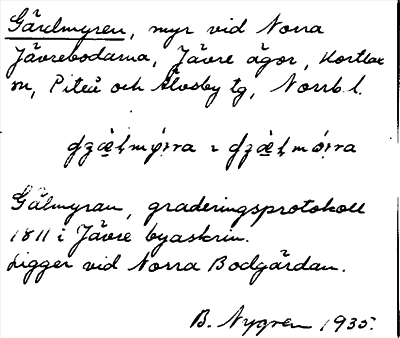 Gärdmyren, myr vid Norra
Jävrebodarna, Jävre ägor, Hortlax
sn, Piteå och Älvsby tg, Norrb. l.
Gälmyran, graderingsprotokoll
1811 i Jävre byaskrin.
Ligger vid Norra Bodgärdan.
B. Nygren 1935.